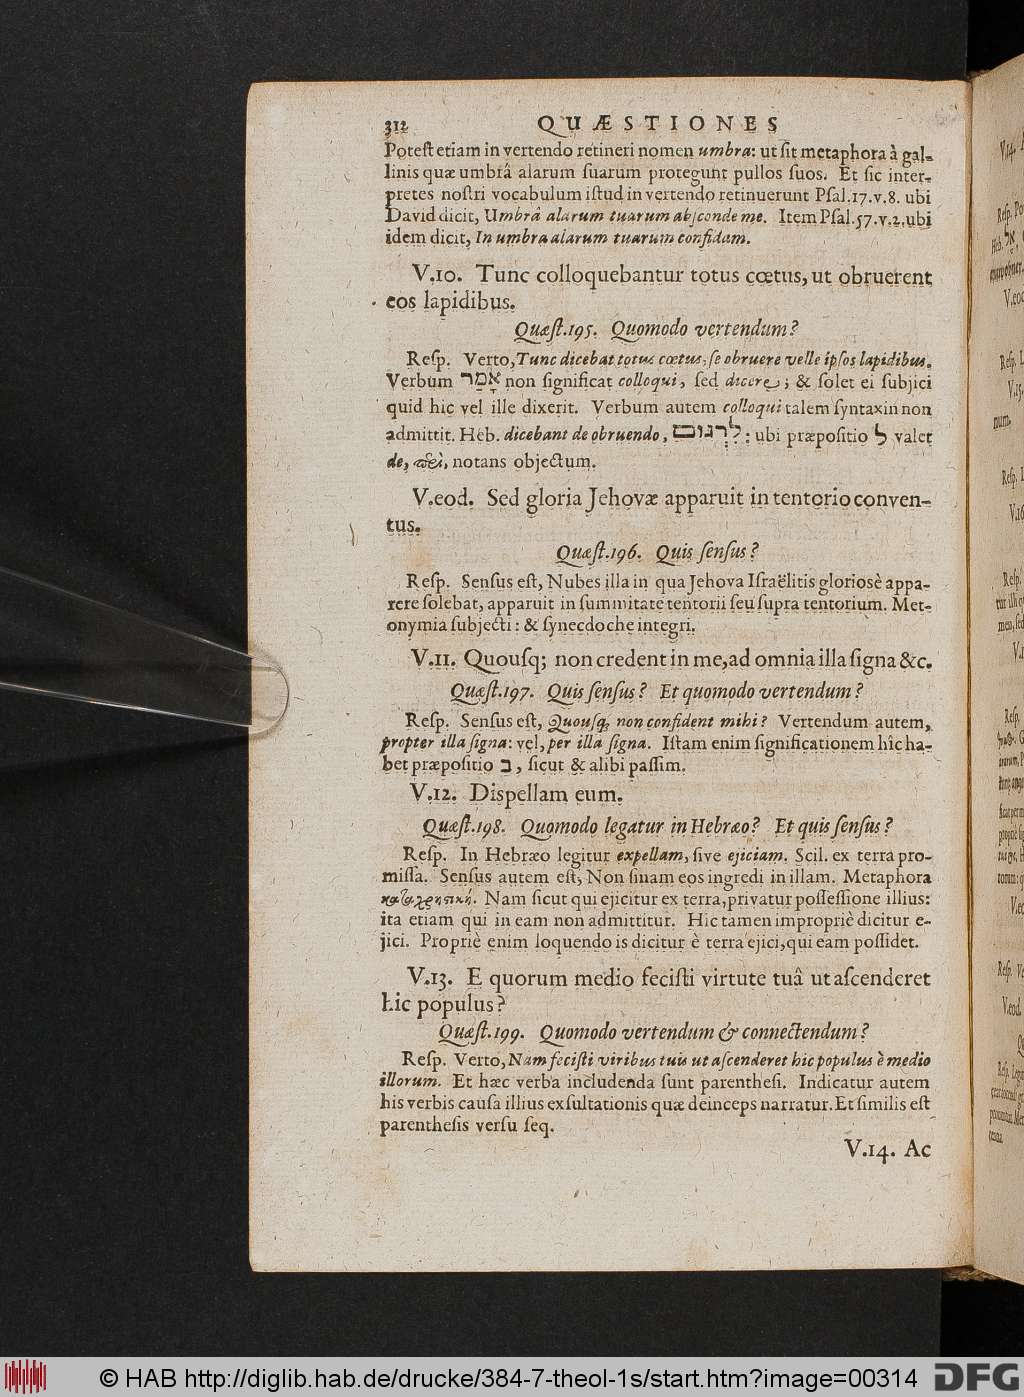 312 QUÆSTIONES
Poteſt etiam in vertendo retineri nomen umbra: ut ſit metaphora à gal-
linis quæ umbrâ alarum ſuarum protegunt pullos ſuos. Et ſic inter-
pretes noſtri vocabulum iſtud in vertendo retinuerunt Pſal.17.v.8. ubi
David dicit, Umbrâ alarum tuarum abſconde me. Item Pſal.57.v.2.ubi
idem dicit, In umbra alarum tuarum confidam.
V.10. Tunc colloquebantur totus cœtus, ut obruerent
eos lapidibus.
Quæſt.195. Quomodo vertendum?
Reſp. Verto, Tunc dicebat totus cœtus, ſe obruere velle ipſos lapidibus.
Verbum אָמַר non ſignificat colloqui, ſed dicere; & ſolet ei ſubjici
quid hic vel ille dixerit. Verbum autem colloqui talem ſyntaxin non
admittit. Heb. dicebant de obruendo, לִרְגּוֹם: ubi præpoſitio ל valet
de, περὶ, notans objectum.
V.eod. Sed gloria Jehovæ apparuit in tentorio conven-
tus.
Quæſt.196. Quis ſenſus?
Reſp. Senſus eſt, Nubes illa in qua Jehova Iſraëlitis glorioſè appa-
rere ſolebat, apparuit in ſummitate tentorii ſeu ſupra tentorium. Met-
onymia ſubjecti: & ſynecdoche integri.
V.11. Quouſq; non credent in me, ad omnia illa ſigna &c.
Quæſt.197. Quis ſenſus? Et quomodo vertendum?
Reſp. Senſus eſt, Quouſq; non confident mihi? Vertendum autem,
propter illa ſigna: vel, per illa ſigna. Iſtam enim ſignificationem hîc ha-
bet præpoſitio ב, ſicut & alibi paſſim.
V.12. Dispellam eum.
Quæſt.198. Quomodo legatur in Hebræo? Et quis ſenſus?
Reſp. In Hebræo legitur expellam, ſive ejiciam. Scil. ex terra pro-
miſſa. Senſus autem eſt, Non ſinam eos ingredi in illam. Metaphora
καταχρηστική. Nam ſicut qui ejicitur ex terra, privatur poſſeſſione illius:
ita etiam qui in eam non admittitur. Hic tamen impropriè dicitur e-
jici. Propriè enim loquendo is dicitur è terra ejici, qui eam poſſidet.
V.13. E quorum medio feciſti virtute tuâ ut aſcenderet
hic populus?
Quæſt.199. Quomodo vertendum & connectendum?
Reſp. Verto, Nam feciſti viribus tuis ut aſcenderet hic populus è medio
illorum. Et hæc verba includenda ſunt parentheſi. Indicatur autem
his verbis cauſa illius exſultationis quæ deinceps narratur. Et ſimilis eſt
parentheſis verſu ſeq.
V.14. Ac
© HAB http://diglib.hab.de/drucke/384-7-theol-1s/start.htm?image=00314
DFG